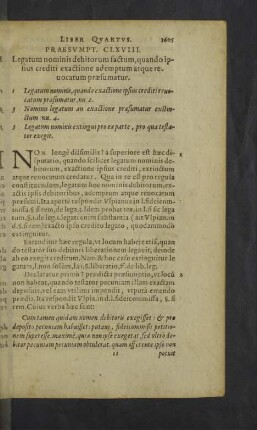 LIBER QVARTVS. 1605
PRAESVMPT. CLXVIII.
Legatum nominis debitorum factum, quando ip
sius crediti exactione ademptum atque re
uocatum præsumatur.
1 Legatum nominis, quando exactione ipsius crediti reuo
catum præsumatur. nu. 2.
3 Nominis legatum an exactione præsumatur extin-
ctum nu. 4.
5 Legatum nominis extingui pro ea parte, pro qua testa-
tor exegit.
NON longè dissimilis à superiore est hæc di-
sputatio, quando scilicet legatum nominis de-
bitorum, exactione ipsius crediti, extinctum
atque reuocatum credatur. Qua in re est pro regula
constituendum, legatum hoc nominis debitorum ex-
actis ipsis debitoribus, ademptum atque reuocatum
præsumi. Ita aperte respondit Vlpianus in l. fideicom-
missa. §. si rem, de lega. 3.
exactio ipso credito legato, quodammodo
extinguitur.
Extenditur hæc regula, vt locum habeat etiã, quan
do testator suo debitori liberationem legauit, deinde
ab eo exegit creditum. Nam & hoc casu extinguitur le
gatum,
Declaratur primò prædicta præsumptio, vt locũ
non habeat, quando testator pecuniam illam exactam
deposuit, vel eam vtilim impendit,
Cuius verba hæc sunt:
Cum tamen quidam nomen debitoris exegisset: & pro
deposito pecuniam habuisset: putaui, fideicommissi petitio-
nem superesse. maximè quia non ipse exegerat, sed vltro de-
bitor pecuniam pecuniam obtulerat. quam offerente ipso non
11 potuit